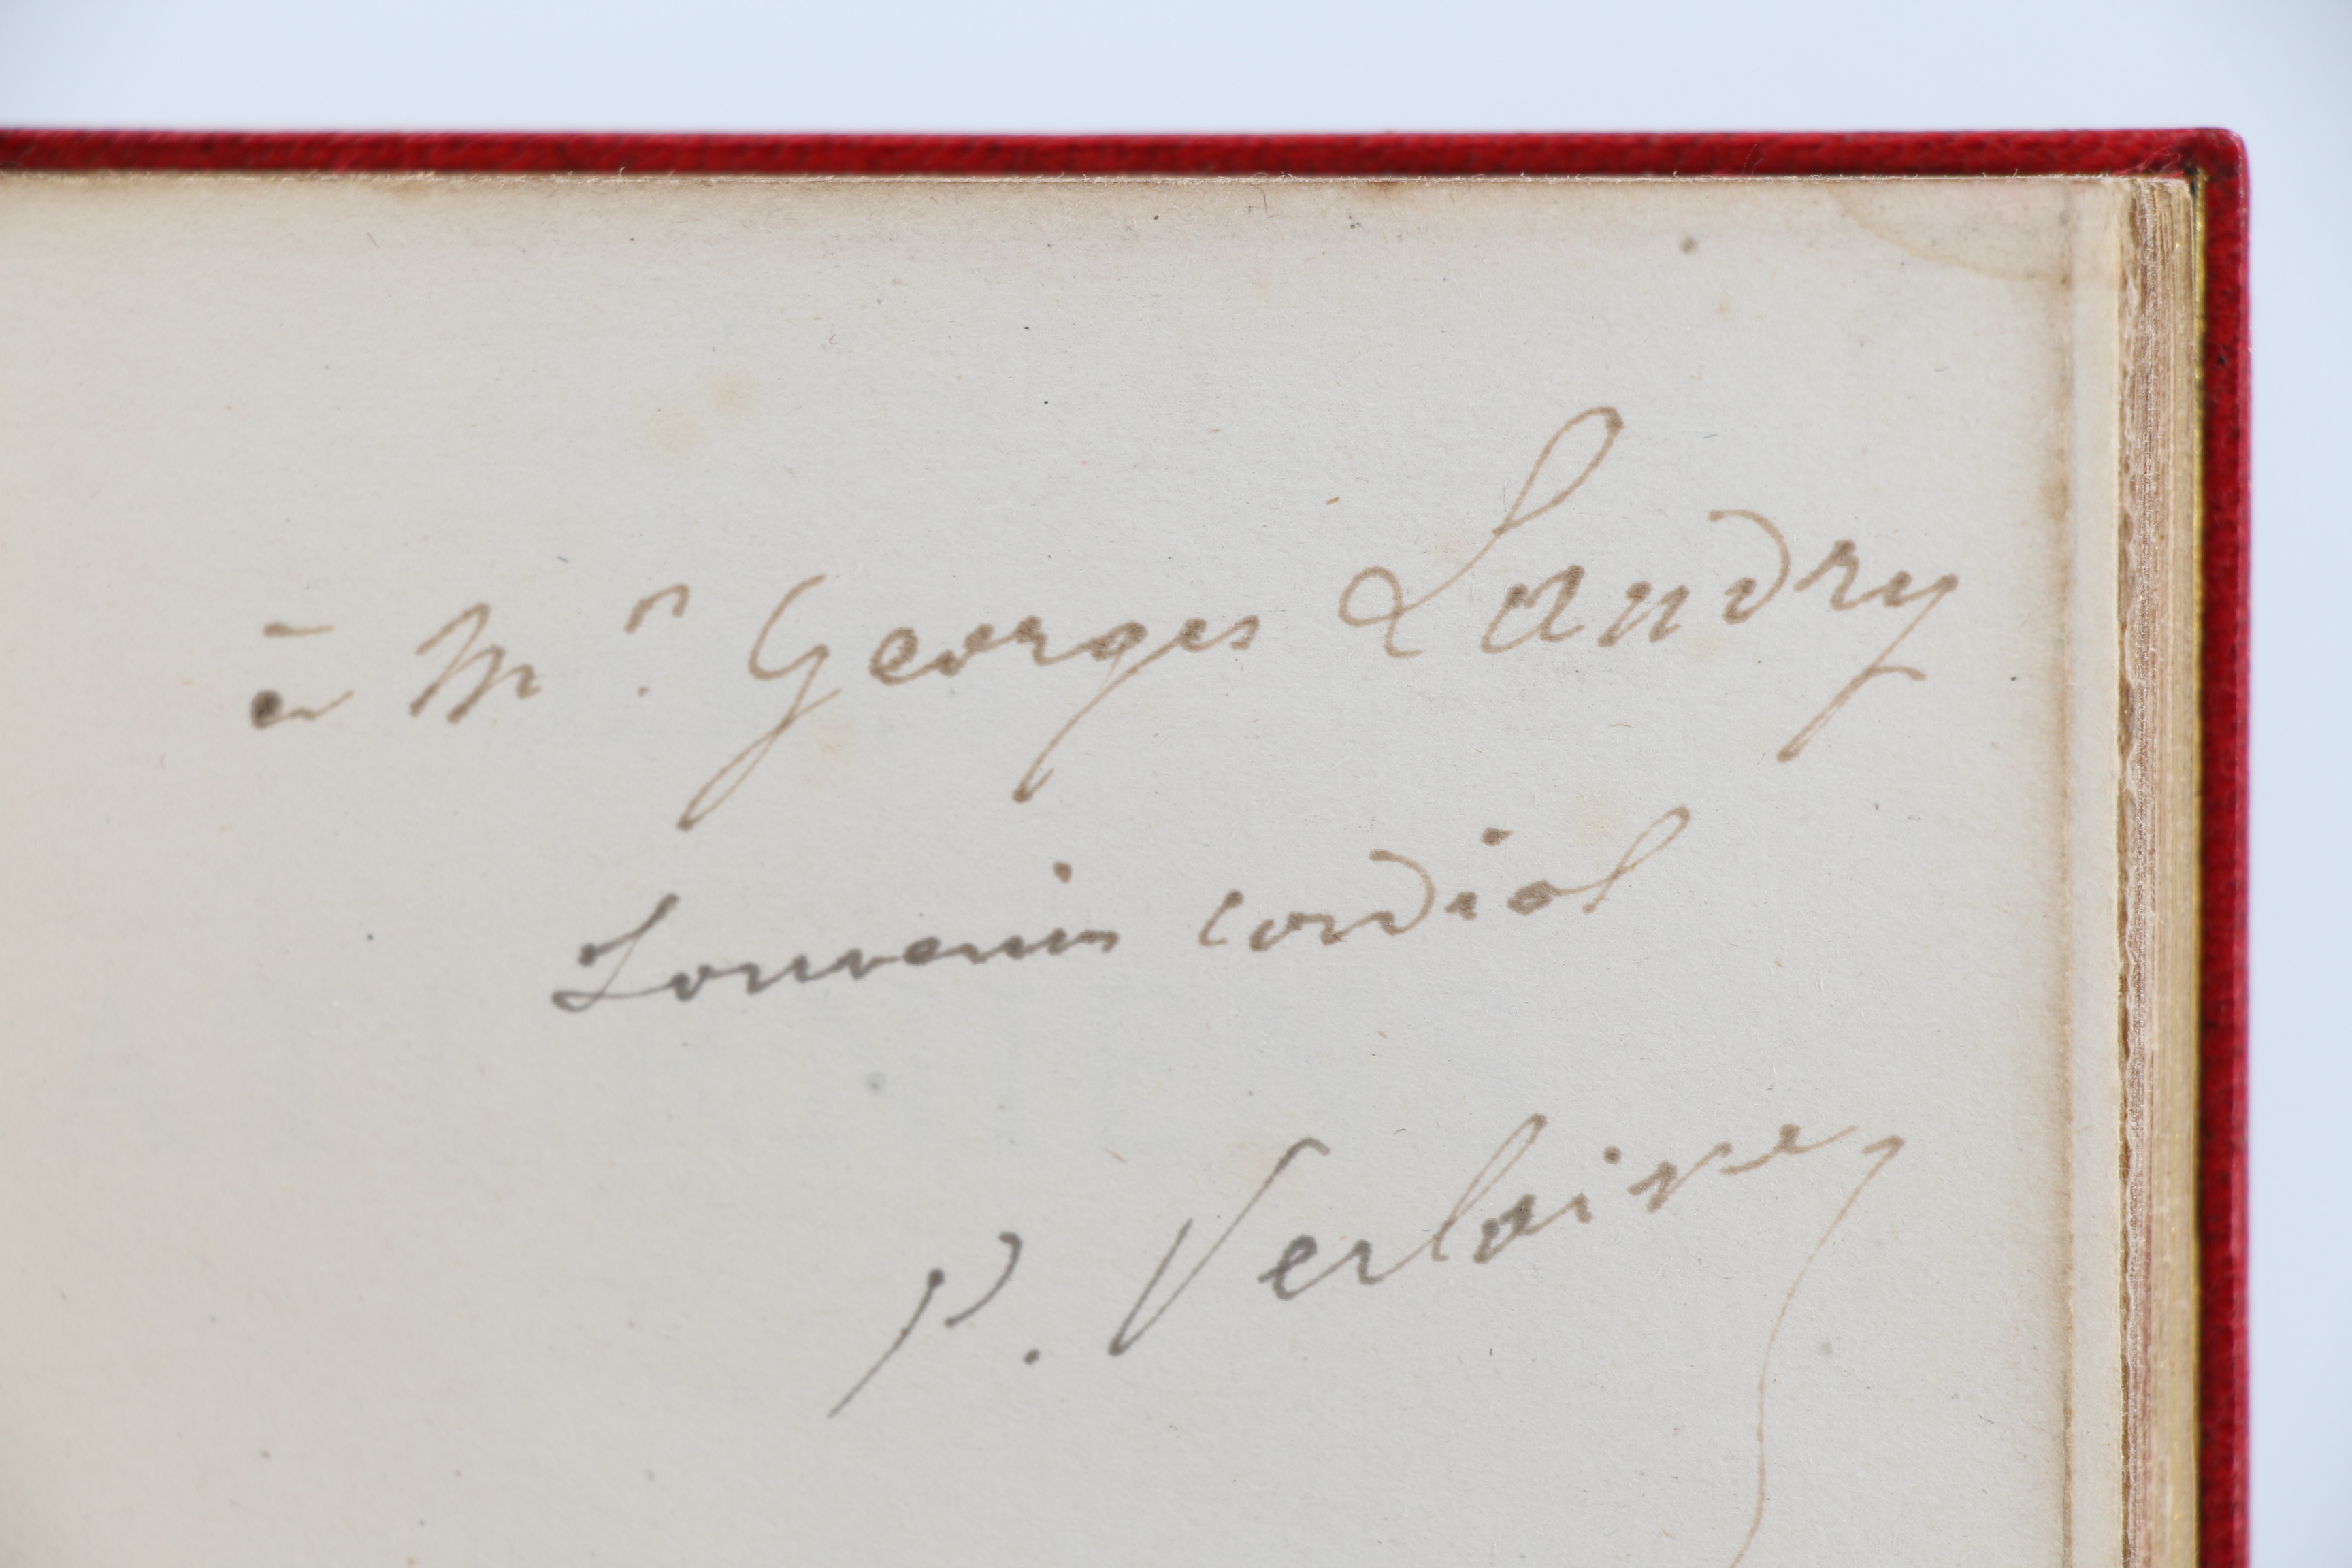 à Mr. Georges Landry
Souvenir cordial
P. Verlaine